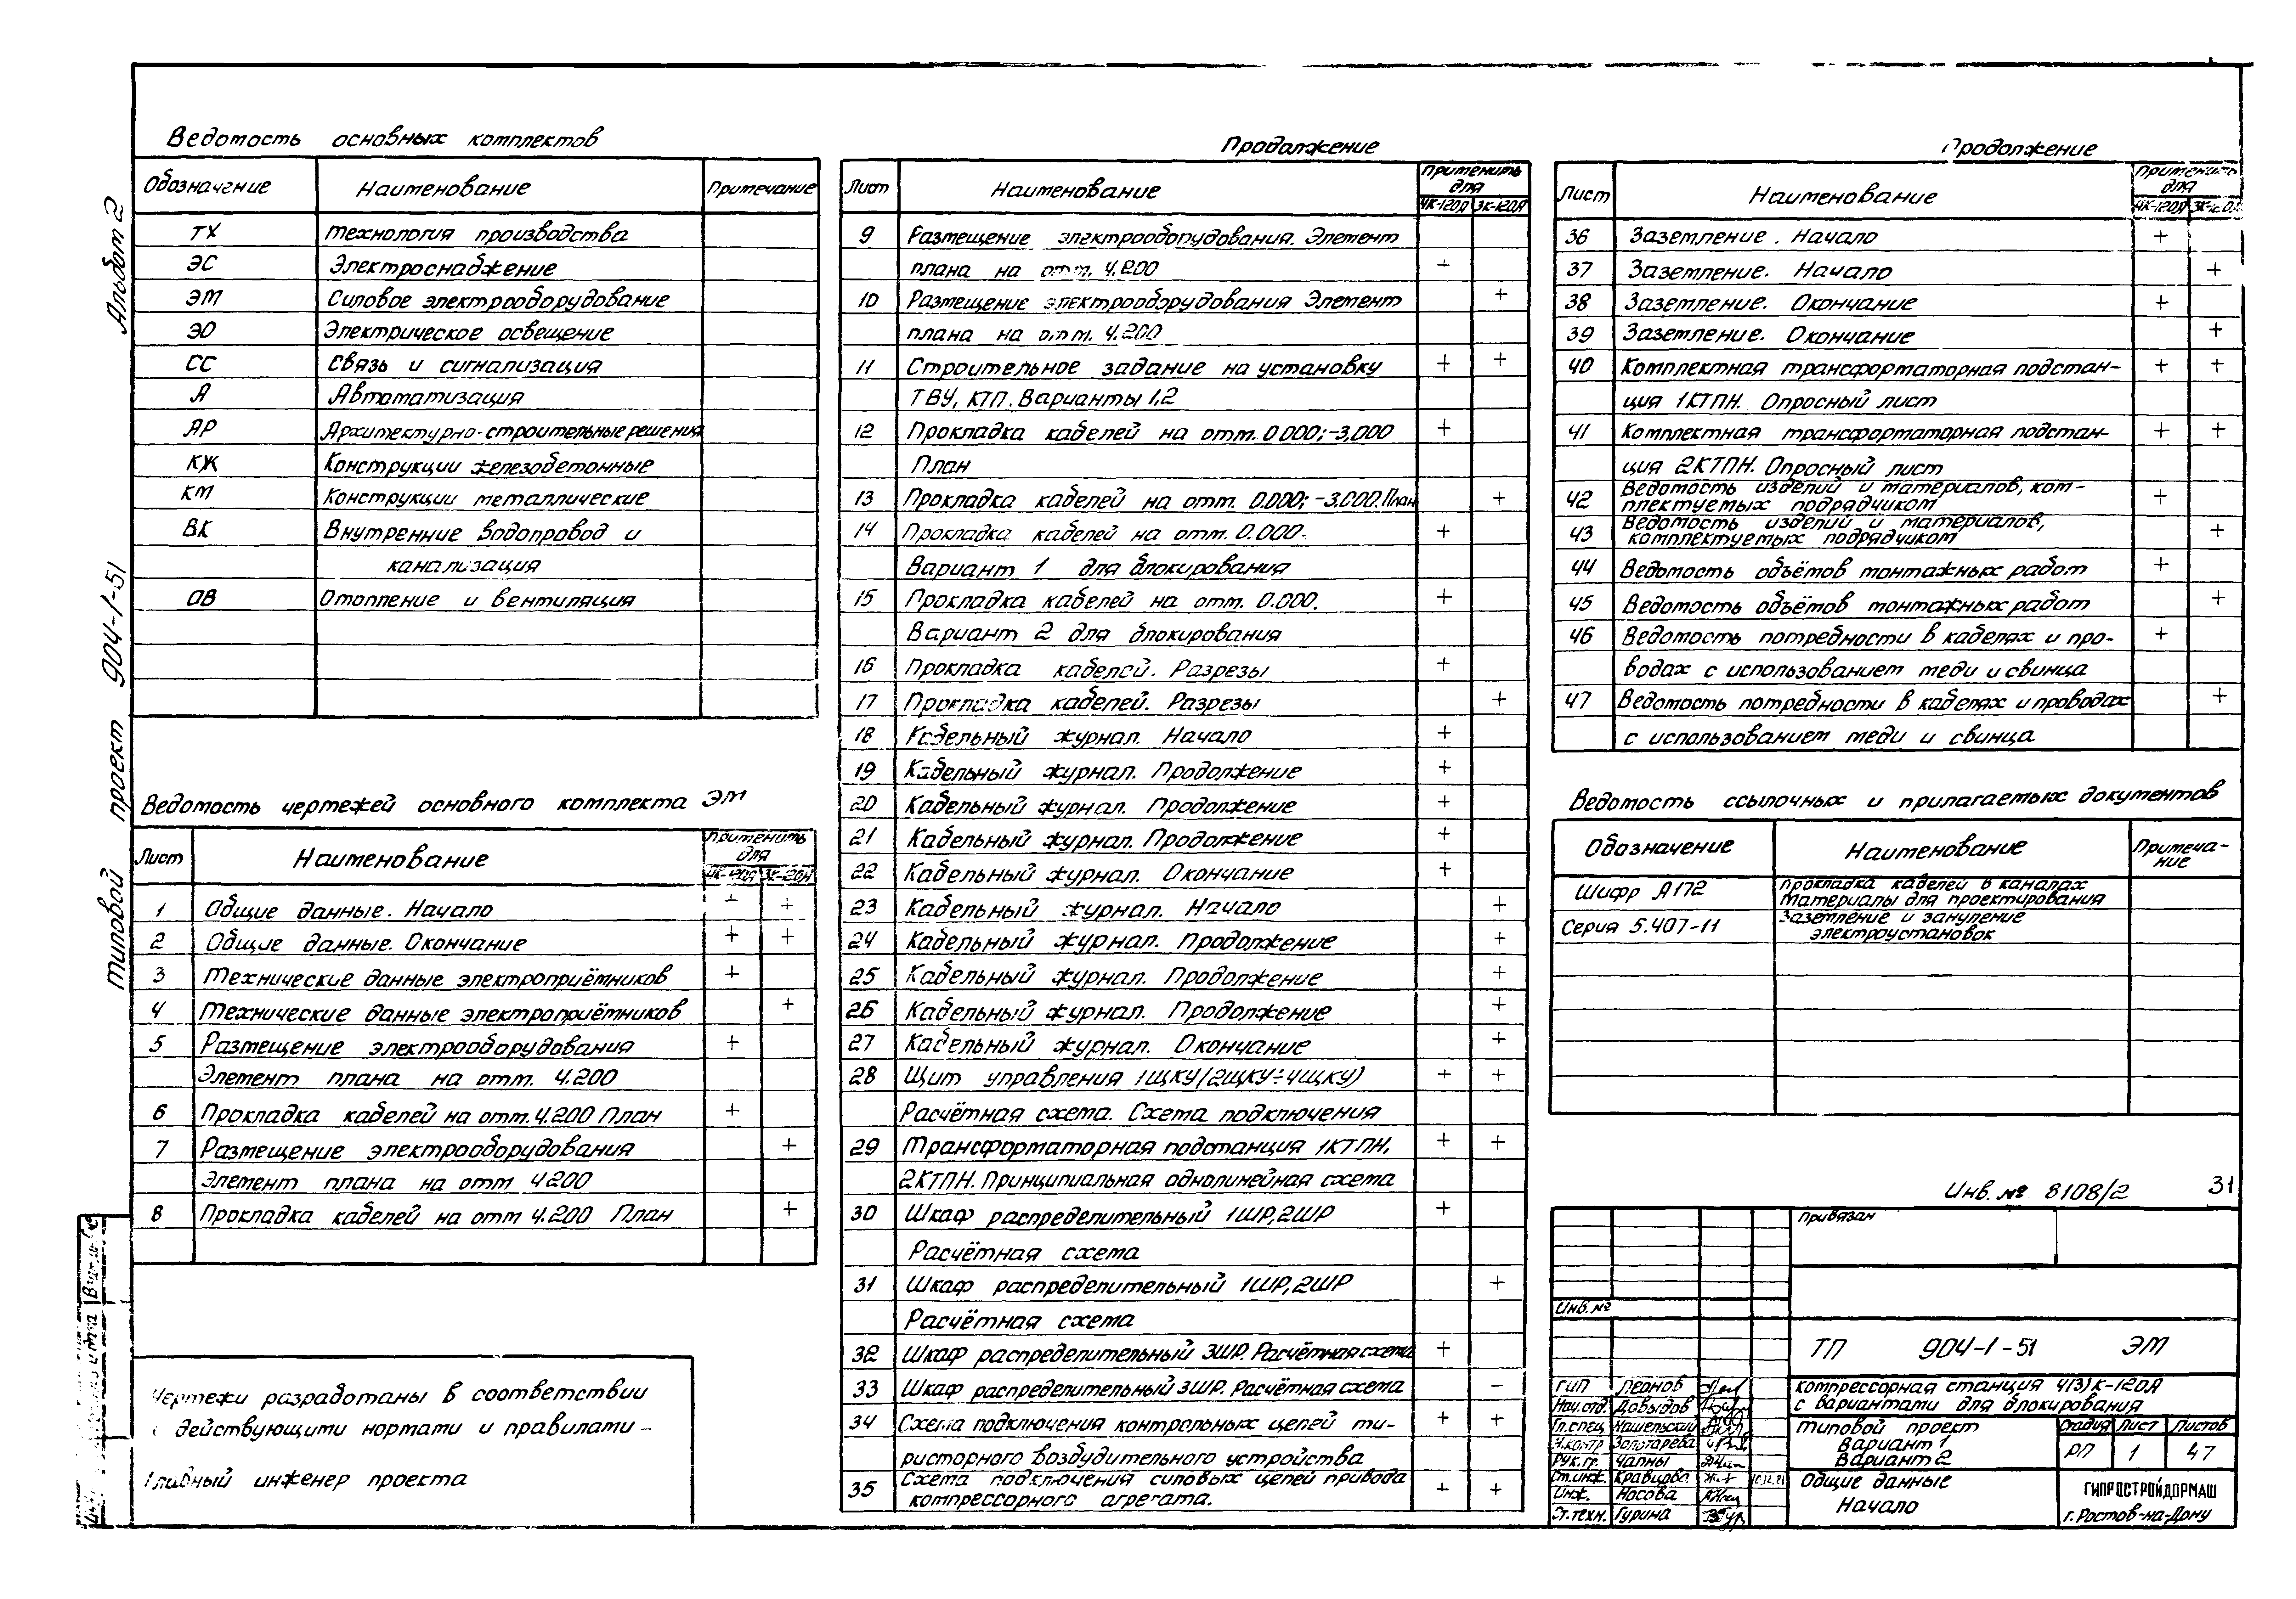 Альбом 2
типовой проект 904-1-51
Ведомость основных комплектов
Обозначение Наименование Примечание
ТХ Технология производства
ЭС Электроснабжение
ЭМ Силовое электрооборудование
ЭО Электрическое освещение
СС Связь и сигнализация
А Автоматизация
АР Архитектурно-строительные решения
КЖ Конструкции железобетонные
КМ Конструкции металлические
ВК Внутренние водопровод и
канализация
ОВ Отопление и вентиляция
Ведомость чертежей основного комплекта ЭМ
Лист Наименование Применить для
4К-120А 3К-120А
1 Общие данные. Начало + +
2 Общие данные. Окончание + +
3 Технические данные электроприёмников +
4 Технические данные электроприёмников +
5 Размещение электрооборудования +
Элемент плана на отм. 4.200
6 Прокладка кабелей на отм. 4.200 План +
7 Размещение электрооборудования +
Элемент плана на отм 4200
8 Прокладка кабелей на отм 4.200 План +
Чертежи разработаны в соответствии
с действующими нормами и правилами –
Главный инженер проекта
Продолжение
Лист Наименование Применить для
4К-120А 3К-120А
9 Размещение электрооборудования. Элемент
плана на отм. 4.200 +
10 Размещение электрооборудования Элемент +
плана на отм. 4.200
11 Строительное задание на установку + +
ТВУ, КТП. Варианты 1,2
12 Прокладка кабелей на отм. 0.000; -3,000 +
План
13 Прокладка кабелей на отм. 0.000; -3.000. План +
14 Прокладка кабелей на отм. 0.000. +
Вариант 1 для блокирования
15 Прокладка кабелей на отм. 0.000. +
Вариант 2 для блокирования
16 Прокладка кабелей. Разрезы +
17 Прокладка кабелей. Разрезы +
18 Кабельный журнал. Начало +
19 Кабельный журнал. Продолжение +
20 Кабельный журнал. Продолжение +
21 Кабельный журнал. Продолжение +
22 Кабельный журнал. Окончание +
23 Кабельный журнал. Начало +
24 Кабельный журнал. Продолжение +
25 Кабельный журнал. Продолжение +
26 Кабельный журнал. Продолжение +
27 Кабельный журнал. Окончание +
28 Щит управления 1ЩКУ/(2ЩКУ÷4ЩКУ) + +
Расчётная схема. Схема подключения
29 Трансформаторная подстанция 1КТПН, + +
2КТПН. Принципиальная однолинейная схема
30 Шкаф распределительный 1ШР, 2ШР +
Расчётная схема
31 Шкаф распределительный 1ШР, 2ШР +
Расчётная схема
32 Шкаф распределительный 3ШР. Расчётная схема +
33 Шкаф распределительный 3ШР. Расчётная схема –
34 Схема подключения контрольных цепей ти- + +
ристорного возбудительного устройства
35 Схема подключения силовых цепей привода + +
компрессорного агрегата.
Продолжение
Лист Наименование Применить для
4К-120А 3К-120А
36 Заземление. Начало +
37 Заземление. Начало +
38 Заземление. Окончание +
39 Заземление. Окончание +
40 Комплектная трансформаторная подстан- + +
ция 1КТПН. Опросный лист
41 Комплектная трансформаторная подстан- + +
ция 2КТПН. Опросный лист
42 Ведомость изделий и материалов, ком- +
плектуемых подрядчиком
43 Ведомость изделий и материалов, +
комплектуемых подрядчиком
44 Ведомость объёмов монтажных работ +
45 Ведомость объёмов монтажных работ +
46 Ведомость потребности в кабелях и про- +
водах с использованием меди и свинца
47 Ведомость потребности в кабелях и проводах +
с использованием меди и свинца
Ведомость ссылочных и прилагаемых документов
Обозначение Наименование Примеча-
ние
Шифр А172 Прокладка кабелей в каналах
Материалы для проектирования
Серия 5.407-11 Заземление и зануление
электроустановок
Инв. № 8108/2 31
Привязан
Инв. №
ТП 904-1-51 ЭМ
ГИП Леонов
Нач. отд. Давыдов
Гл. спец. Нашельский
Н.контр Золотарева
Рук. гр. Чапны
Ст. инж. Кравцова 10.12.81
Инж. Носова
Ст. техн. Гурина
компрессорная станция 4(3)К-120А
с вариантами для блокирования
Типовой проект
Вариант 1
Вариант 2
Стадия Лист Листов
РП 1 47
Общие данные
Начало
ГИПРОСТРОЙДОРМАШ
г. Ростов-на-Дону